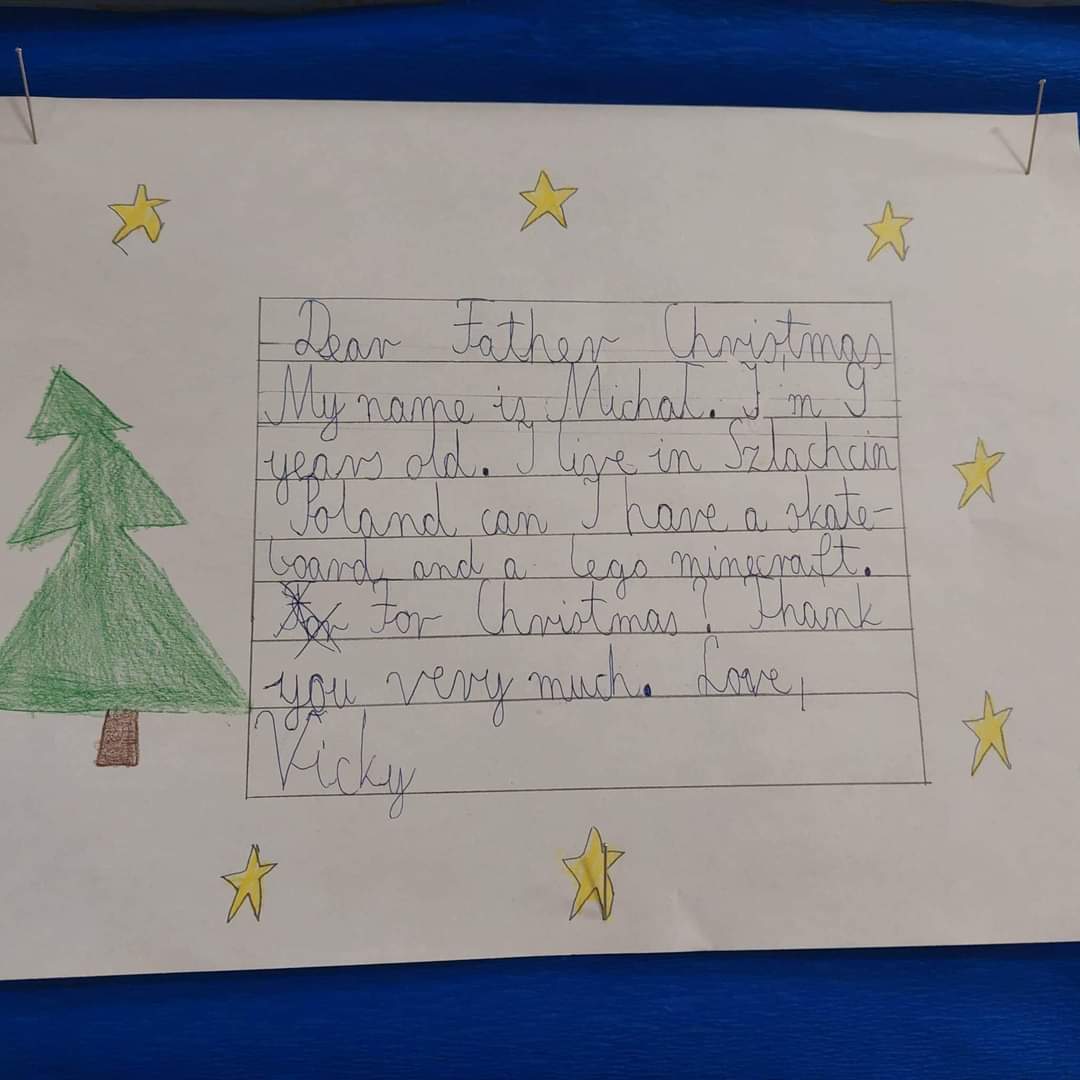 Dear Father Christmas
My name is Michał. I'm 9
years old. I live in Szlachcin
Poland can I have a skate-
board and a lego minecraft.
For Christmas? Thank
you very much. Love,
Vicky